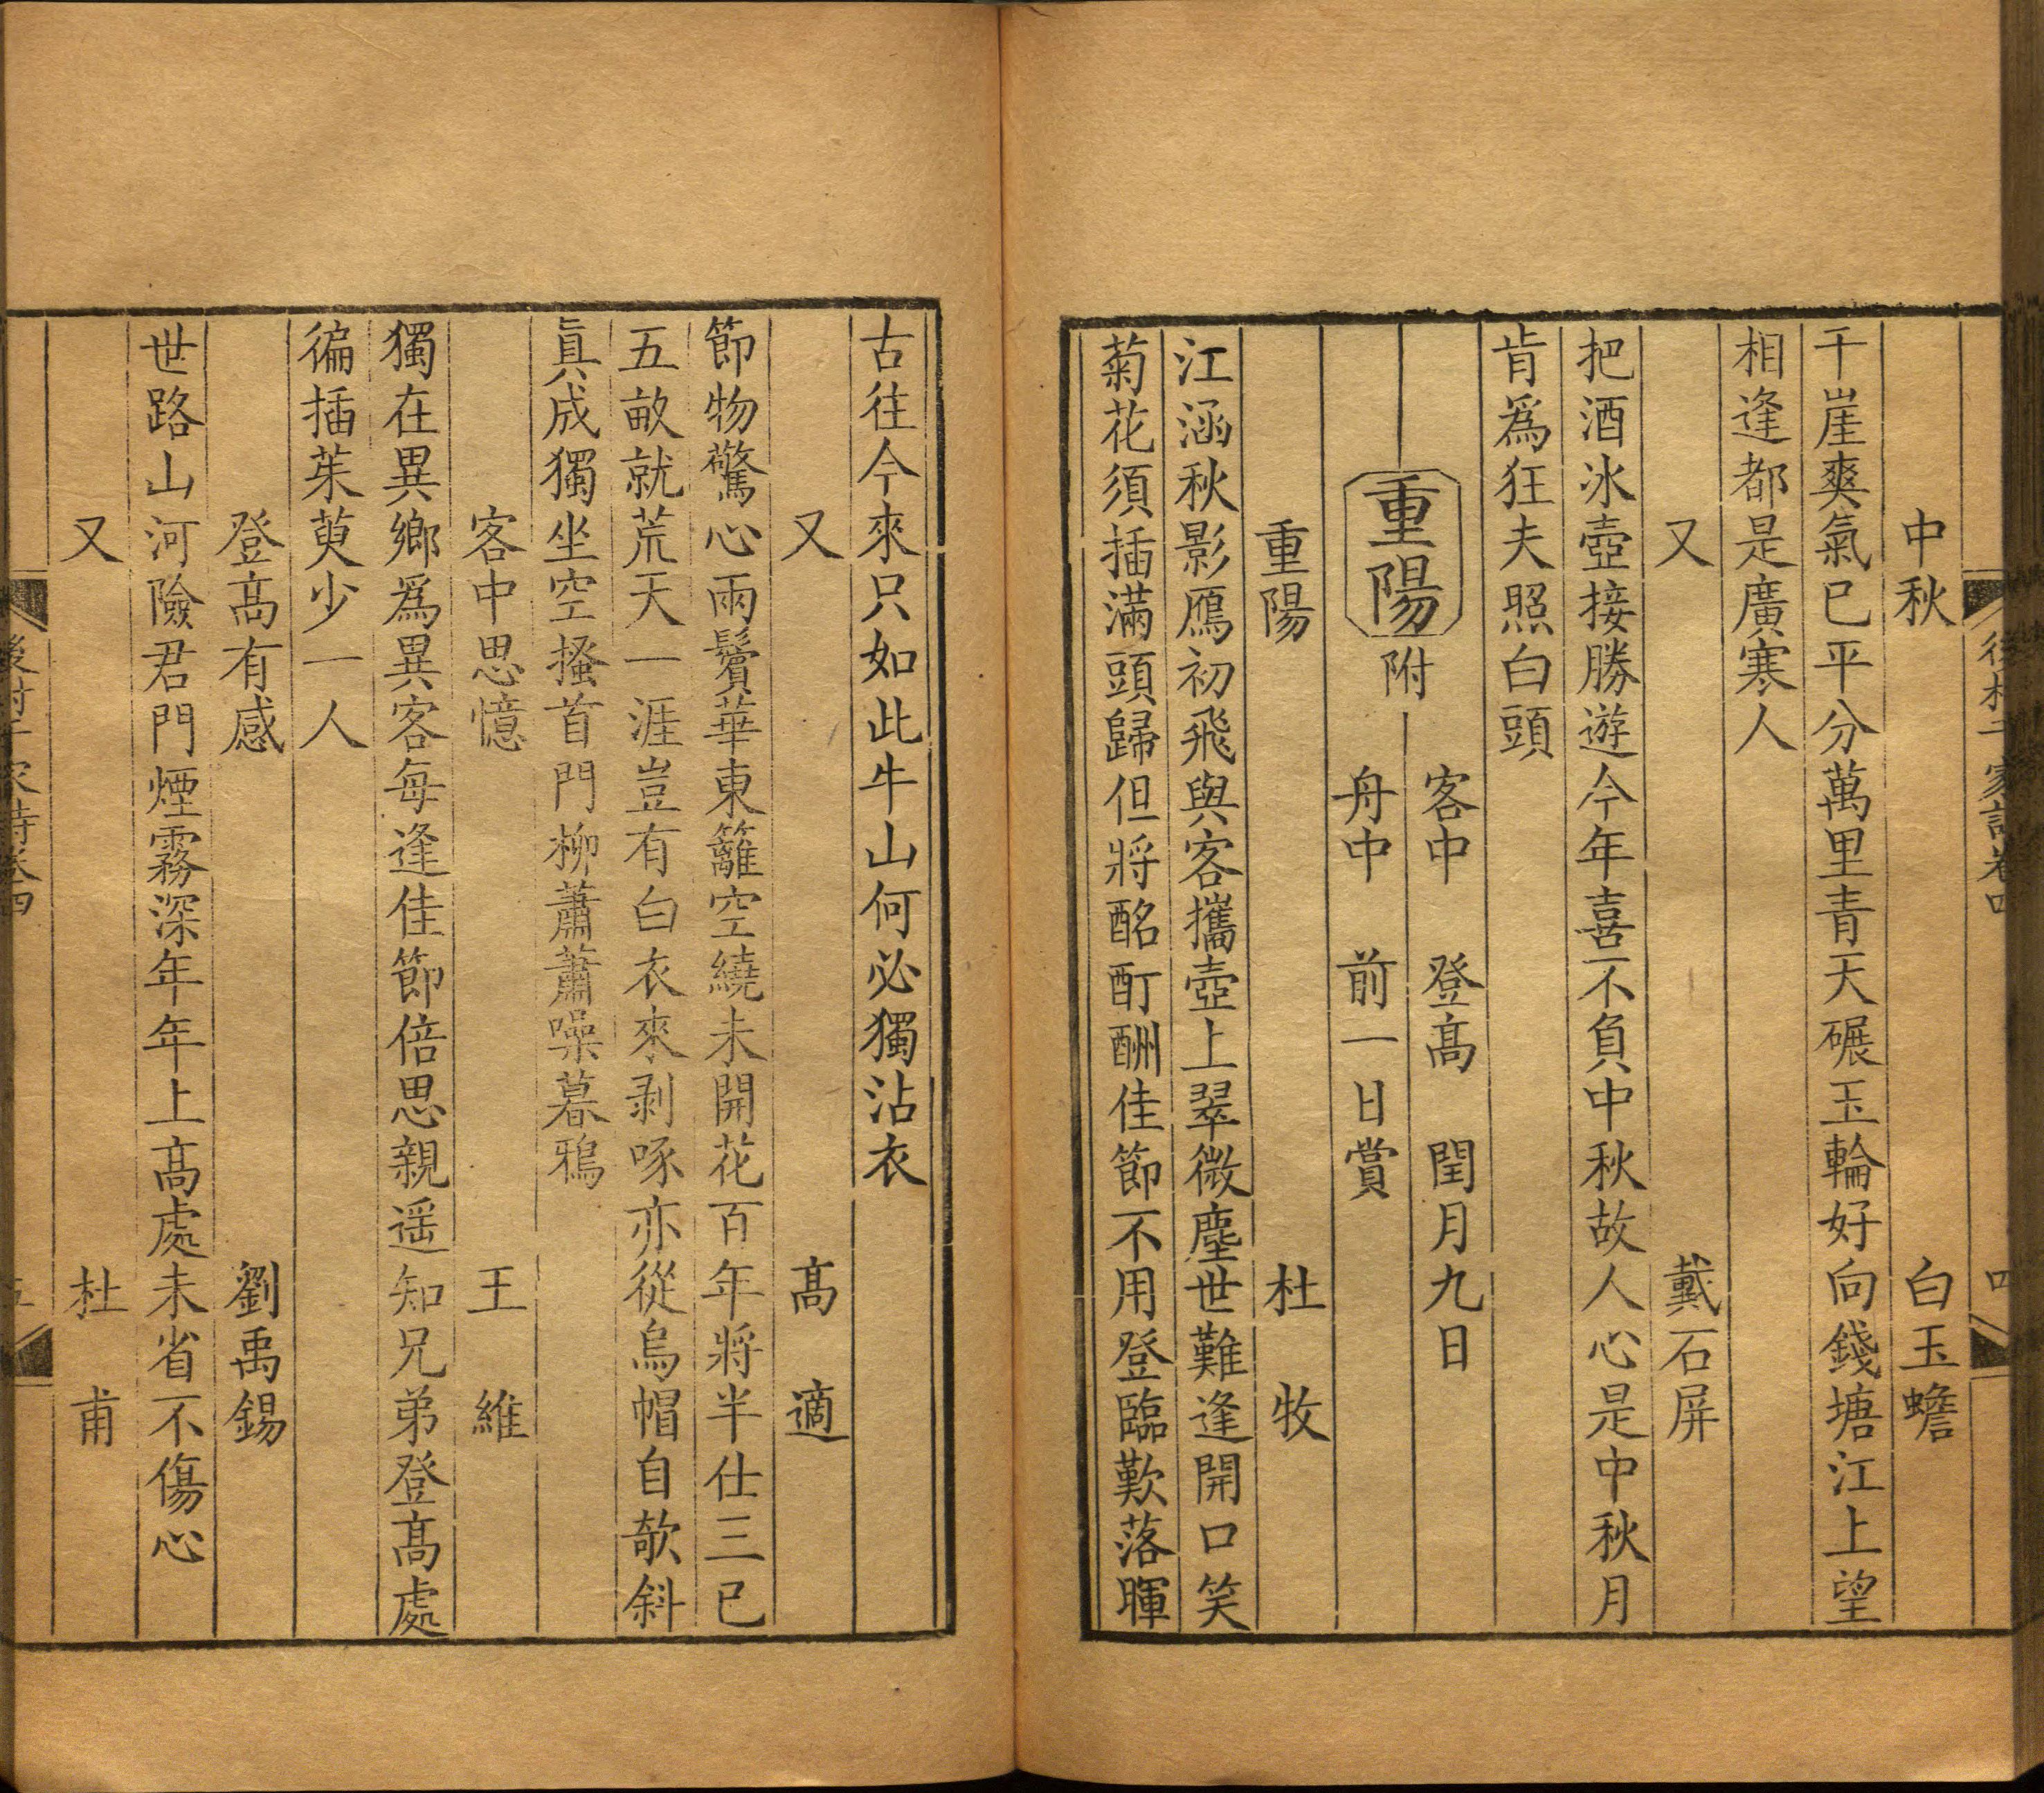 中秋　白玉蟾
千崖爽氣已平分萬里青天碾玉輪好向錢塘江上望
相逢都是廣寒人
又　戴石屏
把酒冰壺接勝遊今年喜不負中秋故人心是中秋月
肯爲狂夫照白頭
重陽
附
客中　登高　閏月九日
舟中　前一日賞
重陽　杜牧
江涵秋影鴈初飛與客攜壺上翠微塵世難逢開口笑
菊花須插滿頭歸但將酩酊酬佳節不用登臨歎落暉
古往今來只如此牛山何必獨沾衣
又　高適
節物驚心兩鬢華東籬空繞未開花百年將半仕三已
五畝就荒天一涯豈有白衣來剥啄亦從烏帽自欹斜
眞成獨坐空搔首門柳蕭蕭噪暮鴉
客中思憶　王維
獨在異鄉爲異客每逢佳節倍思親遥知兄弟登高處
徧插茱萸少一人
登高有感　劉禹錫
世路山河險君門煙霧深年年上高處未省不傷心
又　杜甫